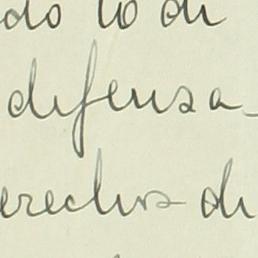 do lo de
defensa
erechos de